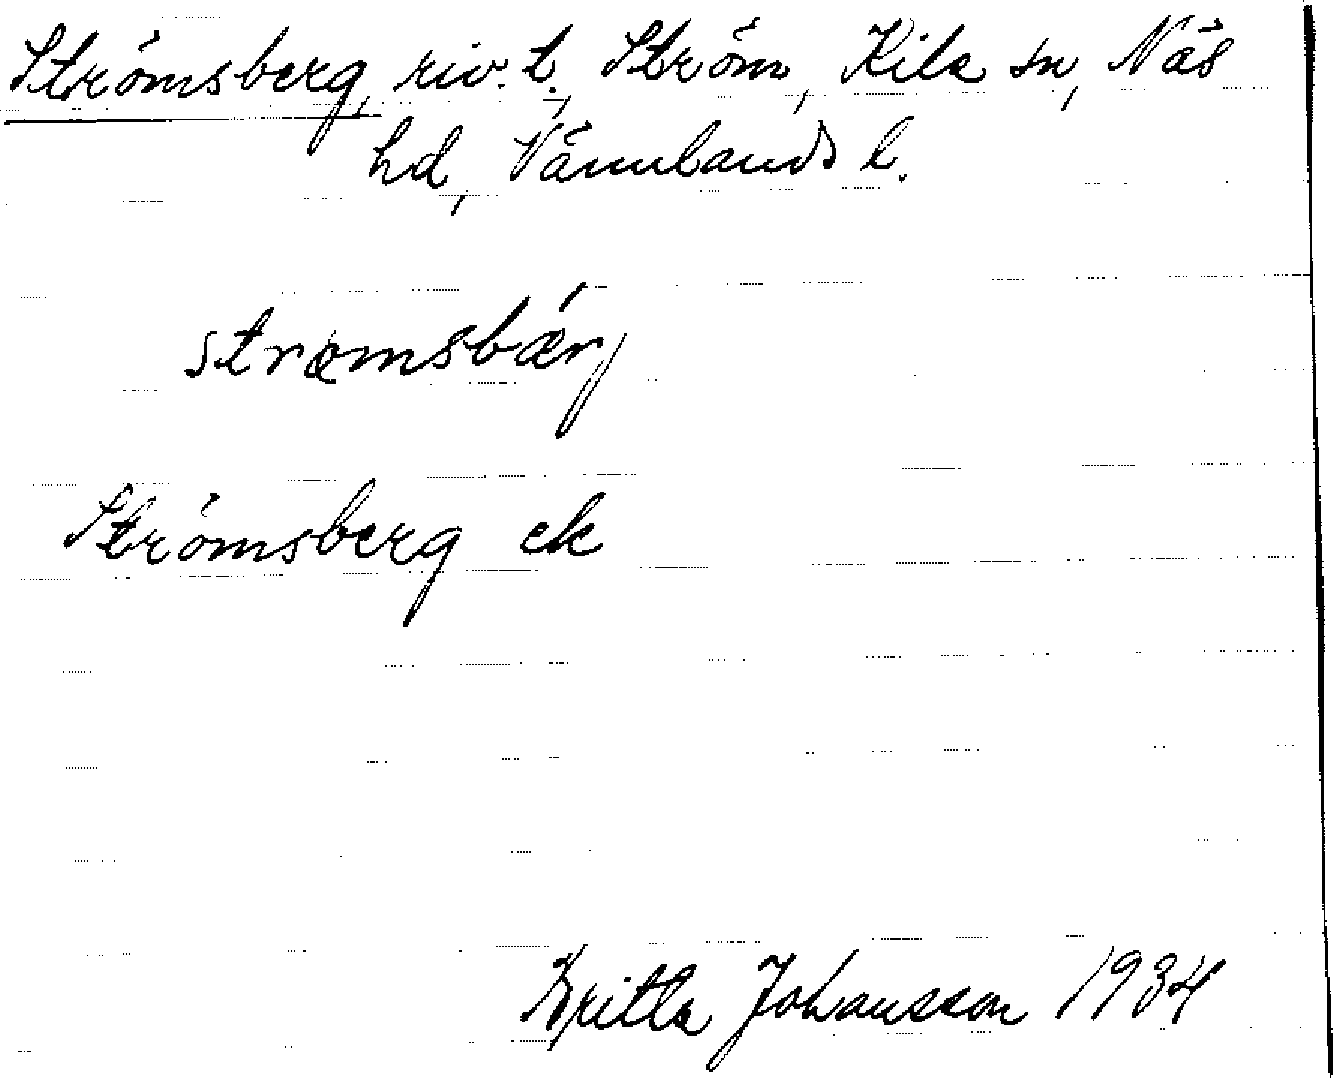 Strömsberg, riv. t., Ström, Kila sn, Näs
hd, Värmlands l.
strömsbärj
Strömsberg ek
Britta Johansson 1934